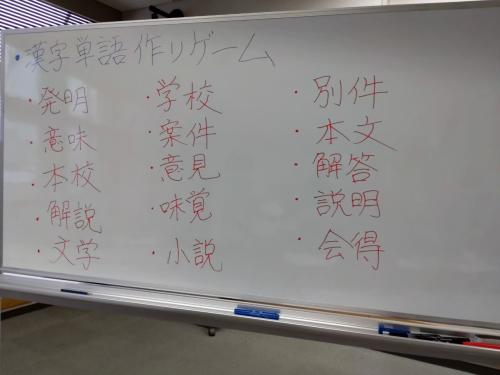 ・漢字単語作りゲーム
・発明
・意味
・本校
・解説
・文学
・学校
・案件
・意見
・味覚
・小説
・別件
・本文
・解答
・説明
・会得